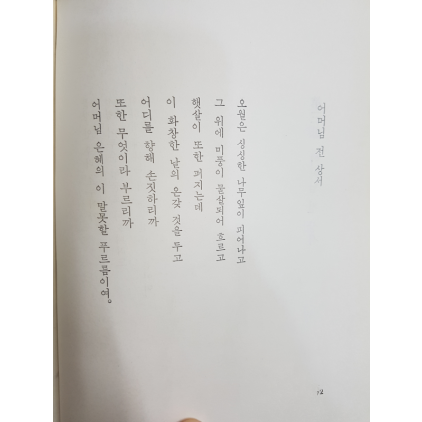 어머님 전 상서
오월은 싱싱한 나무잎이 피어나고
그 위에 미풍이 물살되어 흐르고
햇살이 또한 퍼지는데
이 화창한 날의 온갖 것을 두고
어디를 향해 손짓하리까
또한 무엇이라 부르리까
어머님 은혜의 이 말못할 푸르름이여。